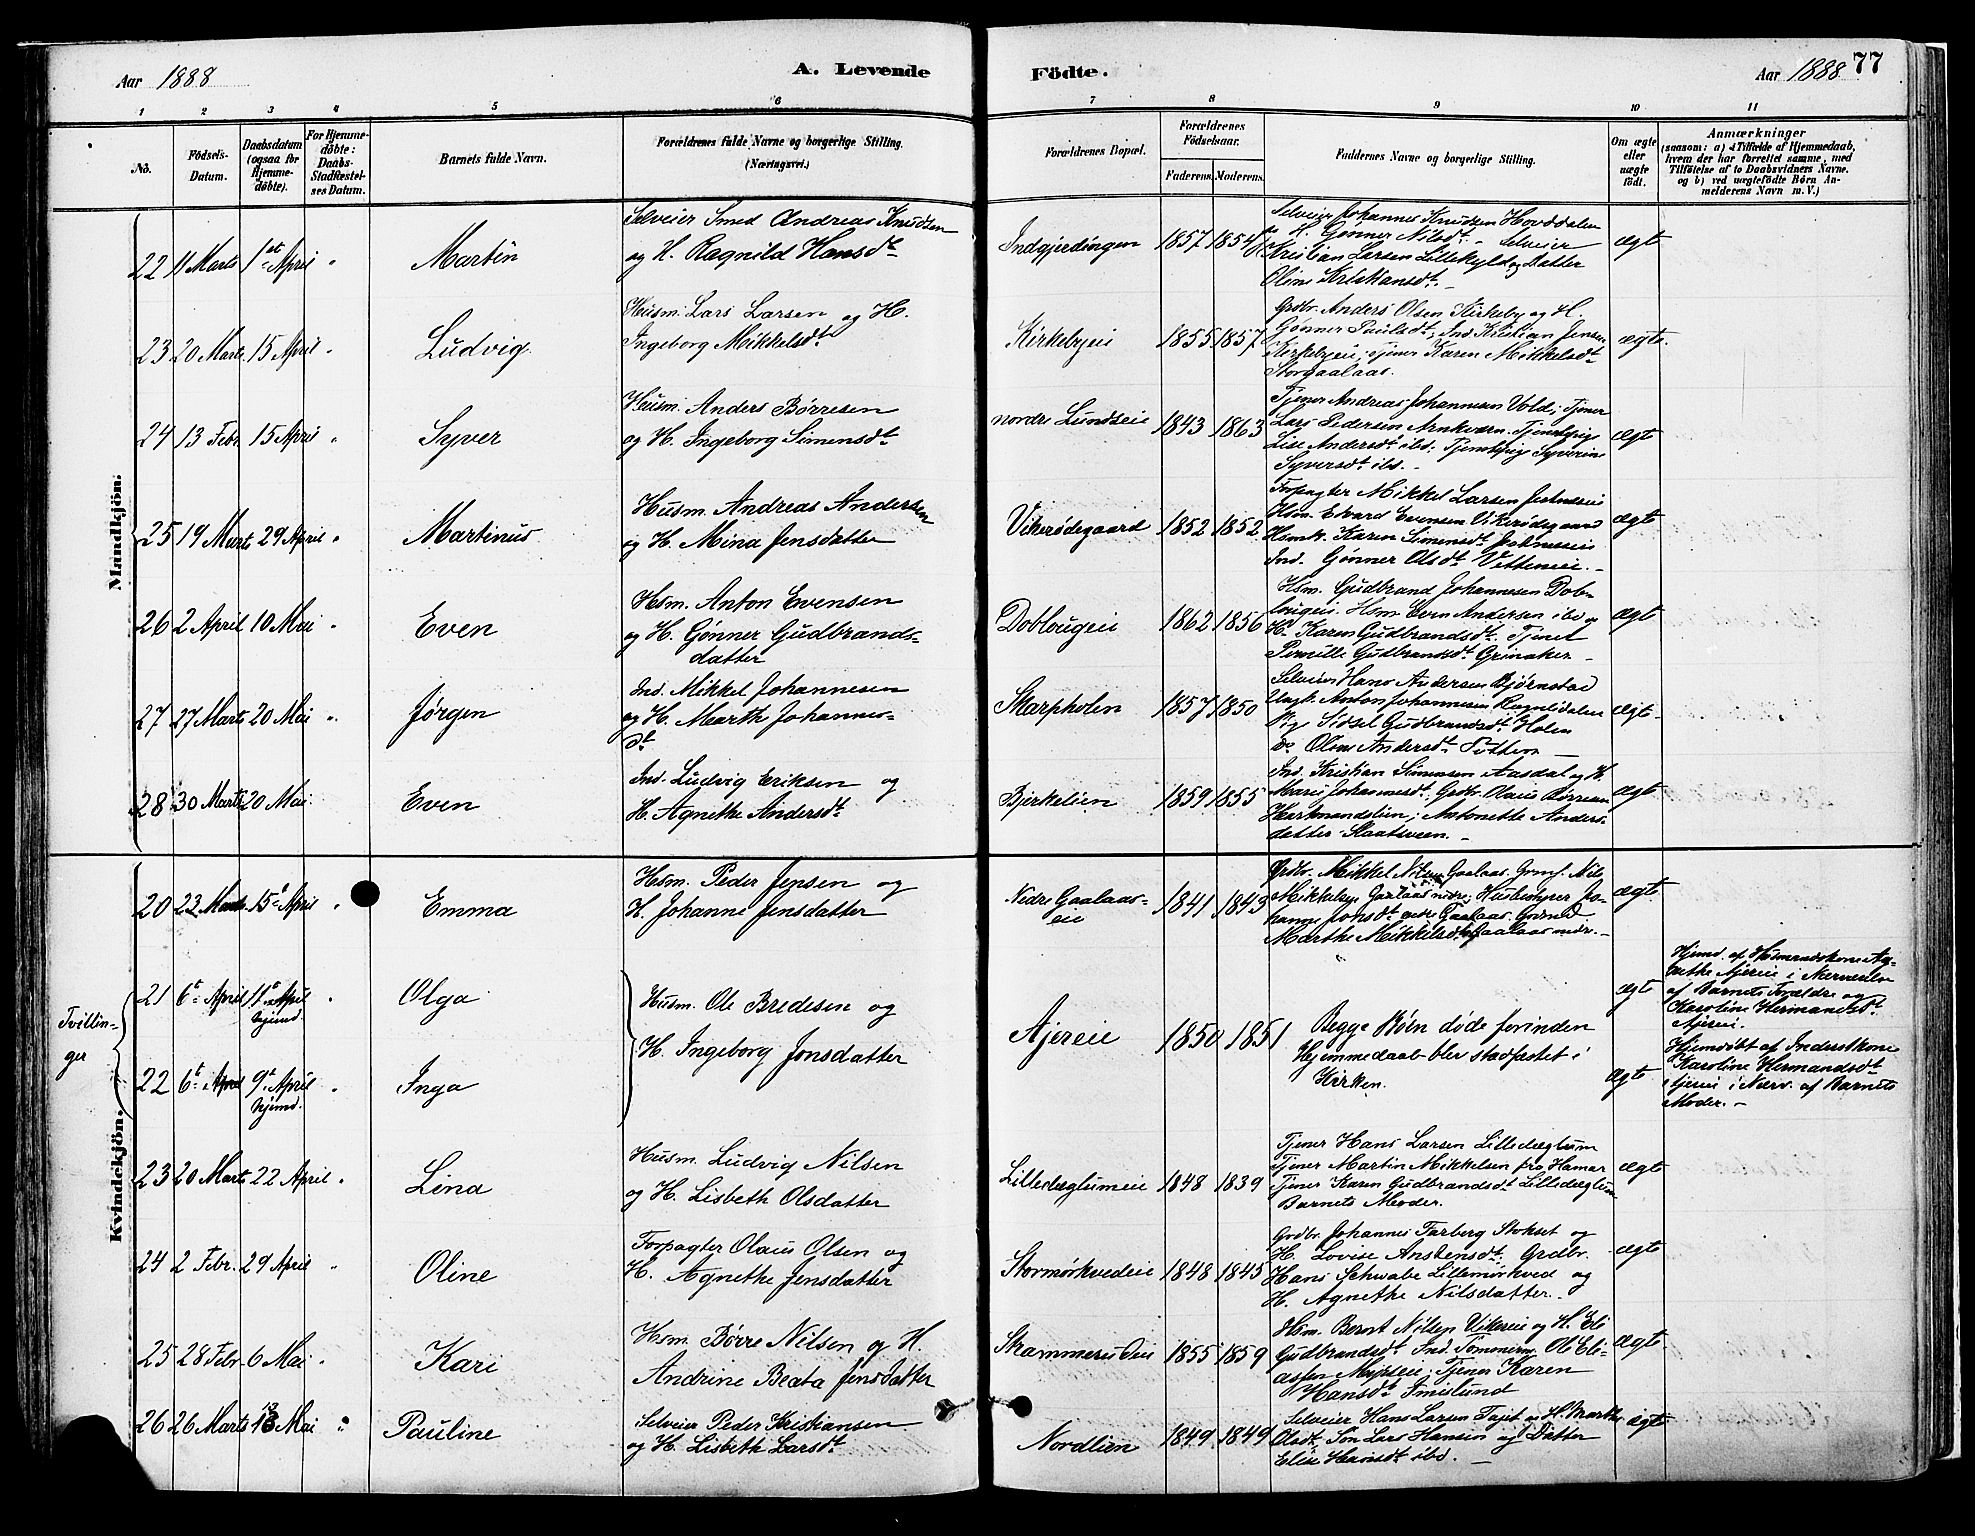 Aar 1888
A. Levende
Födte.
Aar 1888
77
1 2 3 4 5 6 7 8 9 10 11
No.
Födsels-
Datum.
Daabsdatum
(ogsaa for
Hjemme-
döbte).
For Hjemme-
döbte:
Daabs-
Stadfæstel-
ses Datum.
Barnets fulde Navn.
Forældrenes fulde Navne og borgerlige Stilling.
(Næringsvei.)
Forældrenes Bopæl.
Forældrenes
Födselsaar.
Faderens. Moderens.
Faddernes Navne og borgerlige Stilling.
Om ægte
eller
uægte
födt.
Anmærkninger
(saasom: a) i Tilfælde af Hjemmedaab,
hvem der har forrettet samme, med
Tilföielse af to Daabsvidners Navne.
og b) ved uægtefödte Börn An-
melderens Navn m. V.)
Mandkjön.
22 11 Marts 1ste April " Martin
Selveier Smed Andreas Knudsen
og H. Ragnild Hansdt
Indgjerdingen 1857 1854
Selveier Johannes Knudsen Hovddalen
og H. Gønner Nilsdt. Selveier
Kristian Larsen Lillekyld og Datter
Oline Kristiansdt. -
ægte
23 20 Marts 15 April " Ludvig.
Husm. Lars Larsen og H.
Ingeborg Mikkelsdt
Kirkebyeie 1855 1857
Grdbr. Anders Olsen Kirkeby og H.
Gønner Paulsdt; Ind. Kristian Jensen
Kirkebyeie; Tjener Karen Mikkelsdt
Storgaalaas.
ægte.
24 13 Febr. 15 April " Syver
Husm. Anders Börresen
og H. Ingeborg Simensdt
nordre Lundseie 1843 1863
Tjener Andreas Johannesen Vold; Tjener
Lars Pedersen Arnkværn. Tjenestepige
Lise Andersdt ibd; Tjenstpige Syverine
Syversdt ibd. -
ægte
25 19 Marts 29 April " Martinus
Husm. Andreas Andersen
og H. Mina Jensdatter
Vikerødegaard 1852 1852
Forpagter Mikkel Larsen
Hsm. Edvard Evensen Vikerødegaard
Hsmk. Karen Simensdt
Ind. Gønner Olsdt Vetteneie. -
ægte
26 2 April 10 Mai " Even
Hsm. Anton Evensen
og H. Gönner Gudbrands-
datter
Doblougeie 1862 1856
Hsm. Gudbrand Johannesen Dob-
lougeie. Hsm. Even Andersen ibd og
H. Karen Gudbrandsdt. Tjener
Pernille Gudbrandsdt Grinaker. -
ægte
27 27 Marts 20 Mai " Jørgen
Ind. Mikkel Johannesen
og H. Marth Johannes-
dt
Skarpholen 1857 1850
Selveier Hans Andersen Bjørnstad
Ungk. Anton Johannesen Rognlidalen
Pige Sidsel Gudbrandsdt Holen
do Oline Andersdt
ægte.
28 30 Marts 20 Mai Even
Ind. Ludvig Eriksen og
H. Agnethe Andersdt
Bjerkelien 1859 1855
Ind. Kristian Simensen Aasdal og H.
Marie Johannesdt; Grdbr. Olaus Børresen
Hartmandslien; Antonette Anders-
datter Slaatsveen. -
ægte
Kvindekjön.
20 23 Marts 15de April " Emma
Hsm. Peder Jensen og
H. Johanne Jensdatter
Nedre Gaalaas-
eie 1841 1843
Grdbr. Mikkel Nilsen Gaalaas. Grmf. Nils
Mikkelsen Gaalaas nedre; Husbestyrer Jo-
hanne Jonsdt nedre Gaalaas. Grdmd
Marthe Mikkelsdt Gaalaas nedre. -
ægte
Tvillin-
ger
21 6te April 11te April " Olga
hjemd.
Husm. Ole Bredesen og
H. Ingeborg Jonsdatter
Ajereie 1850 1851
Begge Børn døde forinden
Hjemmedaab blev stadfæstet i
Kirken.
ægte
Hjemd. af Husmandskone Ag-
nethe Ajereie i Nærværelse
af Barnets Forældre og
Karoline Hermandsdt
Ajereie.
22 6te April 9de April " Inga
hjemd.
ægte
Hjemdøbt af Inderstkone
Karoline Hermandsdt
Ajereie i Nærv. af Barnets
Moder. -
23 20 Marts 22 April " Lina
Husm. Ludvig Nilsen
og H. Lisbeth Olsdatter
Lilledæglumeie 1848 1839
Tjener Hans Larsen Lilledæglum
Tjener Martin Mikkelsen fra Hamar
Tjener Karen Gudbrandsdt Lilledæglum
Barnets Moder.
ægte
24 2 Febr. 29 April " Oline
Forpagter Olaus Olsen og
H. Agnethe Jensdatter
Stormørkvedeie 1848 1845
Grdbr. Johannes Farberg Stokset og
H. Lovise Anstensdt; Grdbr.
Hans Schwabe Lillemørkved og
H. Agnethe Nilsdatter.
ægte
25 28 Febr. 6 Mai " Kari
Hsm. Börre Nilsen og H.
Andrine Beata Jensdatter
Skammerudeie 1855 1859
Hsm. Bernt Nilsen Vikereie og H. Eli
Gudbrandsdt Ind. Tømmerm. Ole Eli-
assen; Tjener Karen
Hansdt Imislund
ægte
26 26 Marts 13 Mai " Pauline
Selveier Peder Kristiansen
og H. Lisbeth Larsdt
Nordlien 1849 1849
Selveier Hans Larsen Tajet og H. Marthe
Olsdt. Søn Lars Hansen og Datter
Elise Hansdt ibd. -
ægte